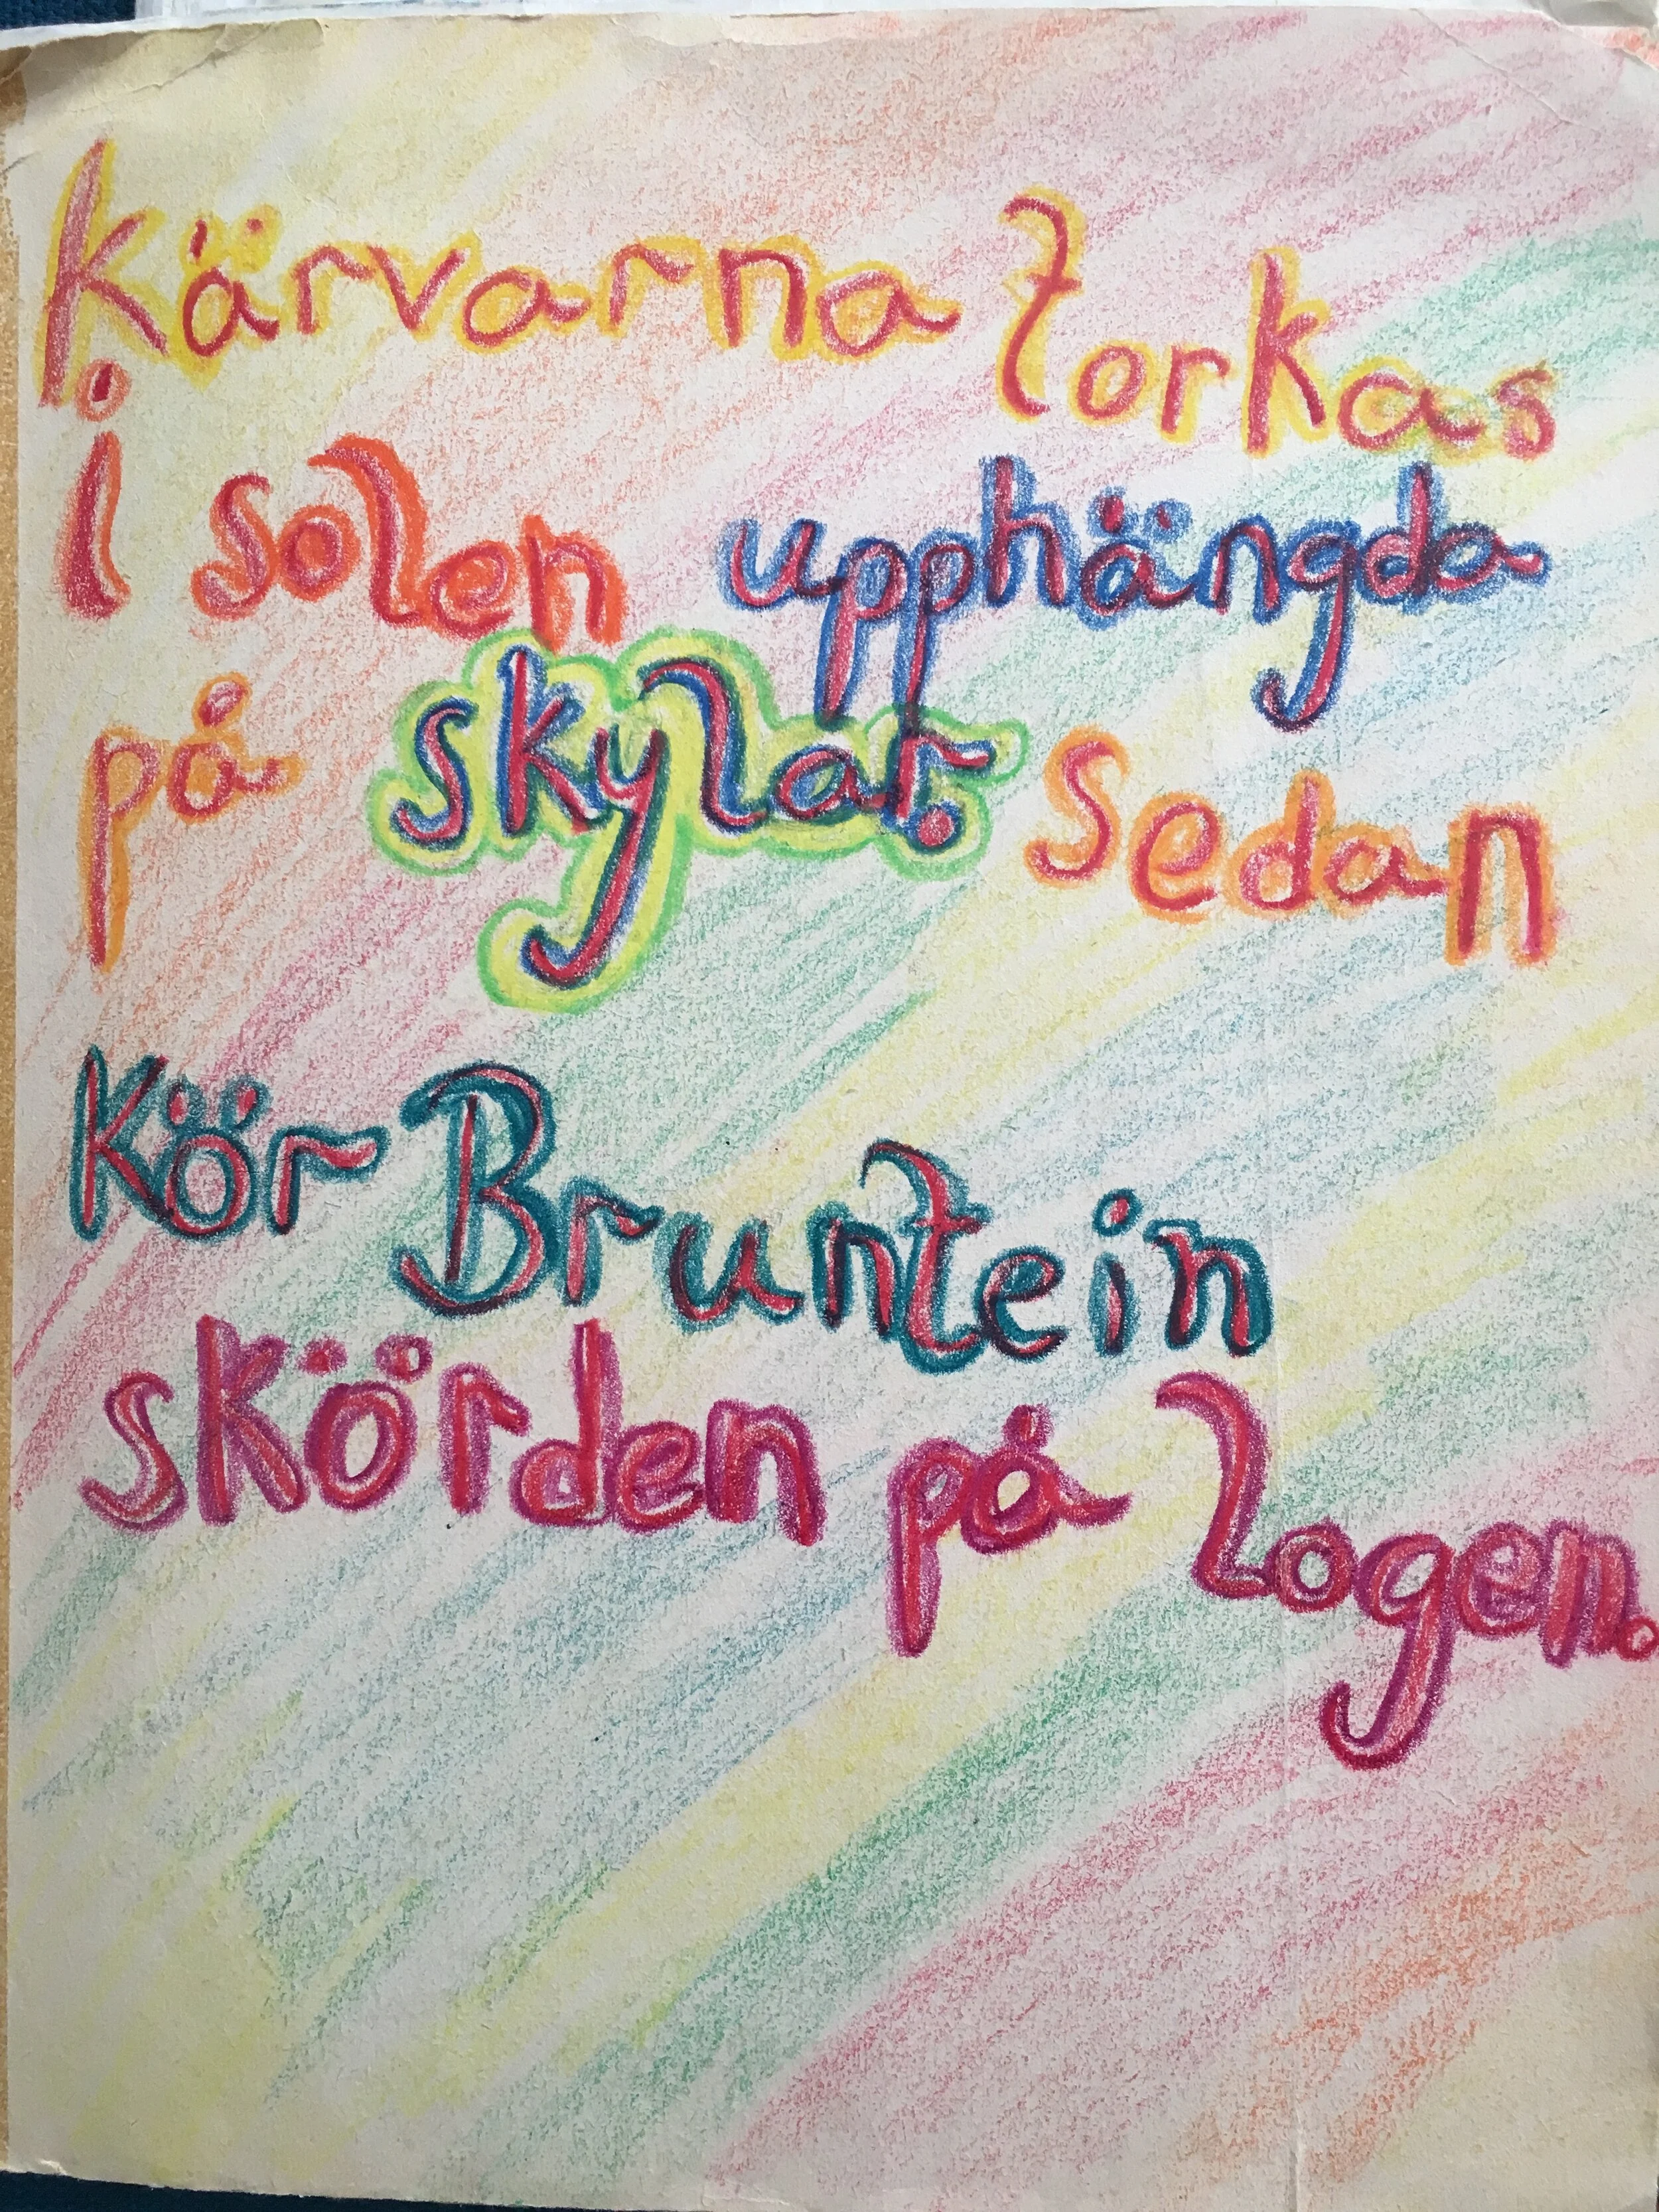 Kärvarna torkas
i solen upphängda
på skylar. Sedan
Kör Bruntein
skörden på logen.